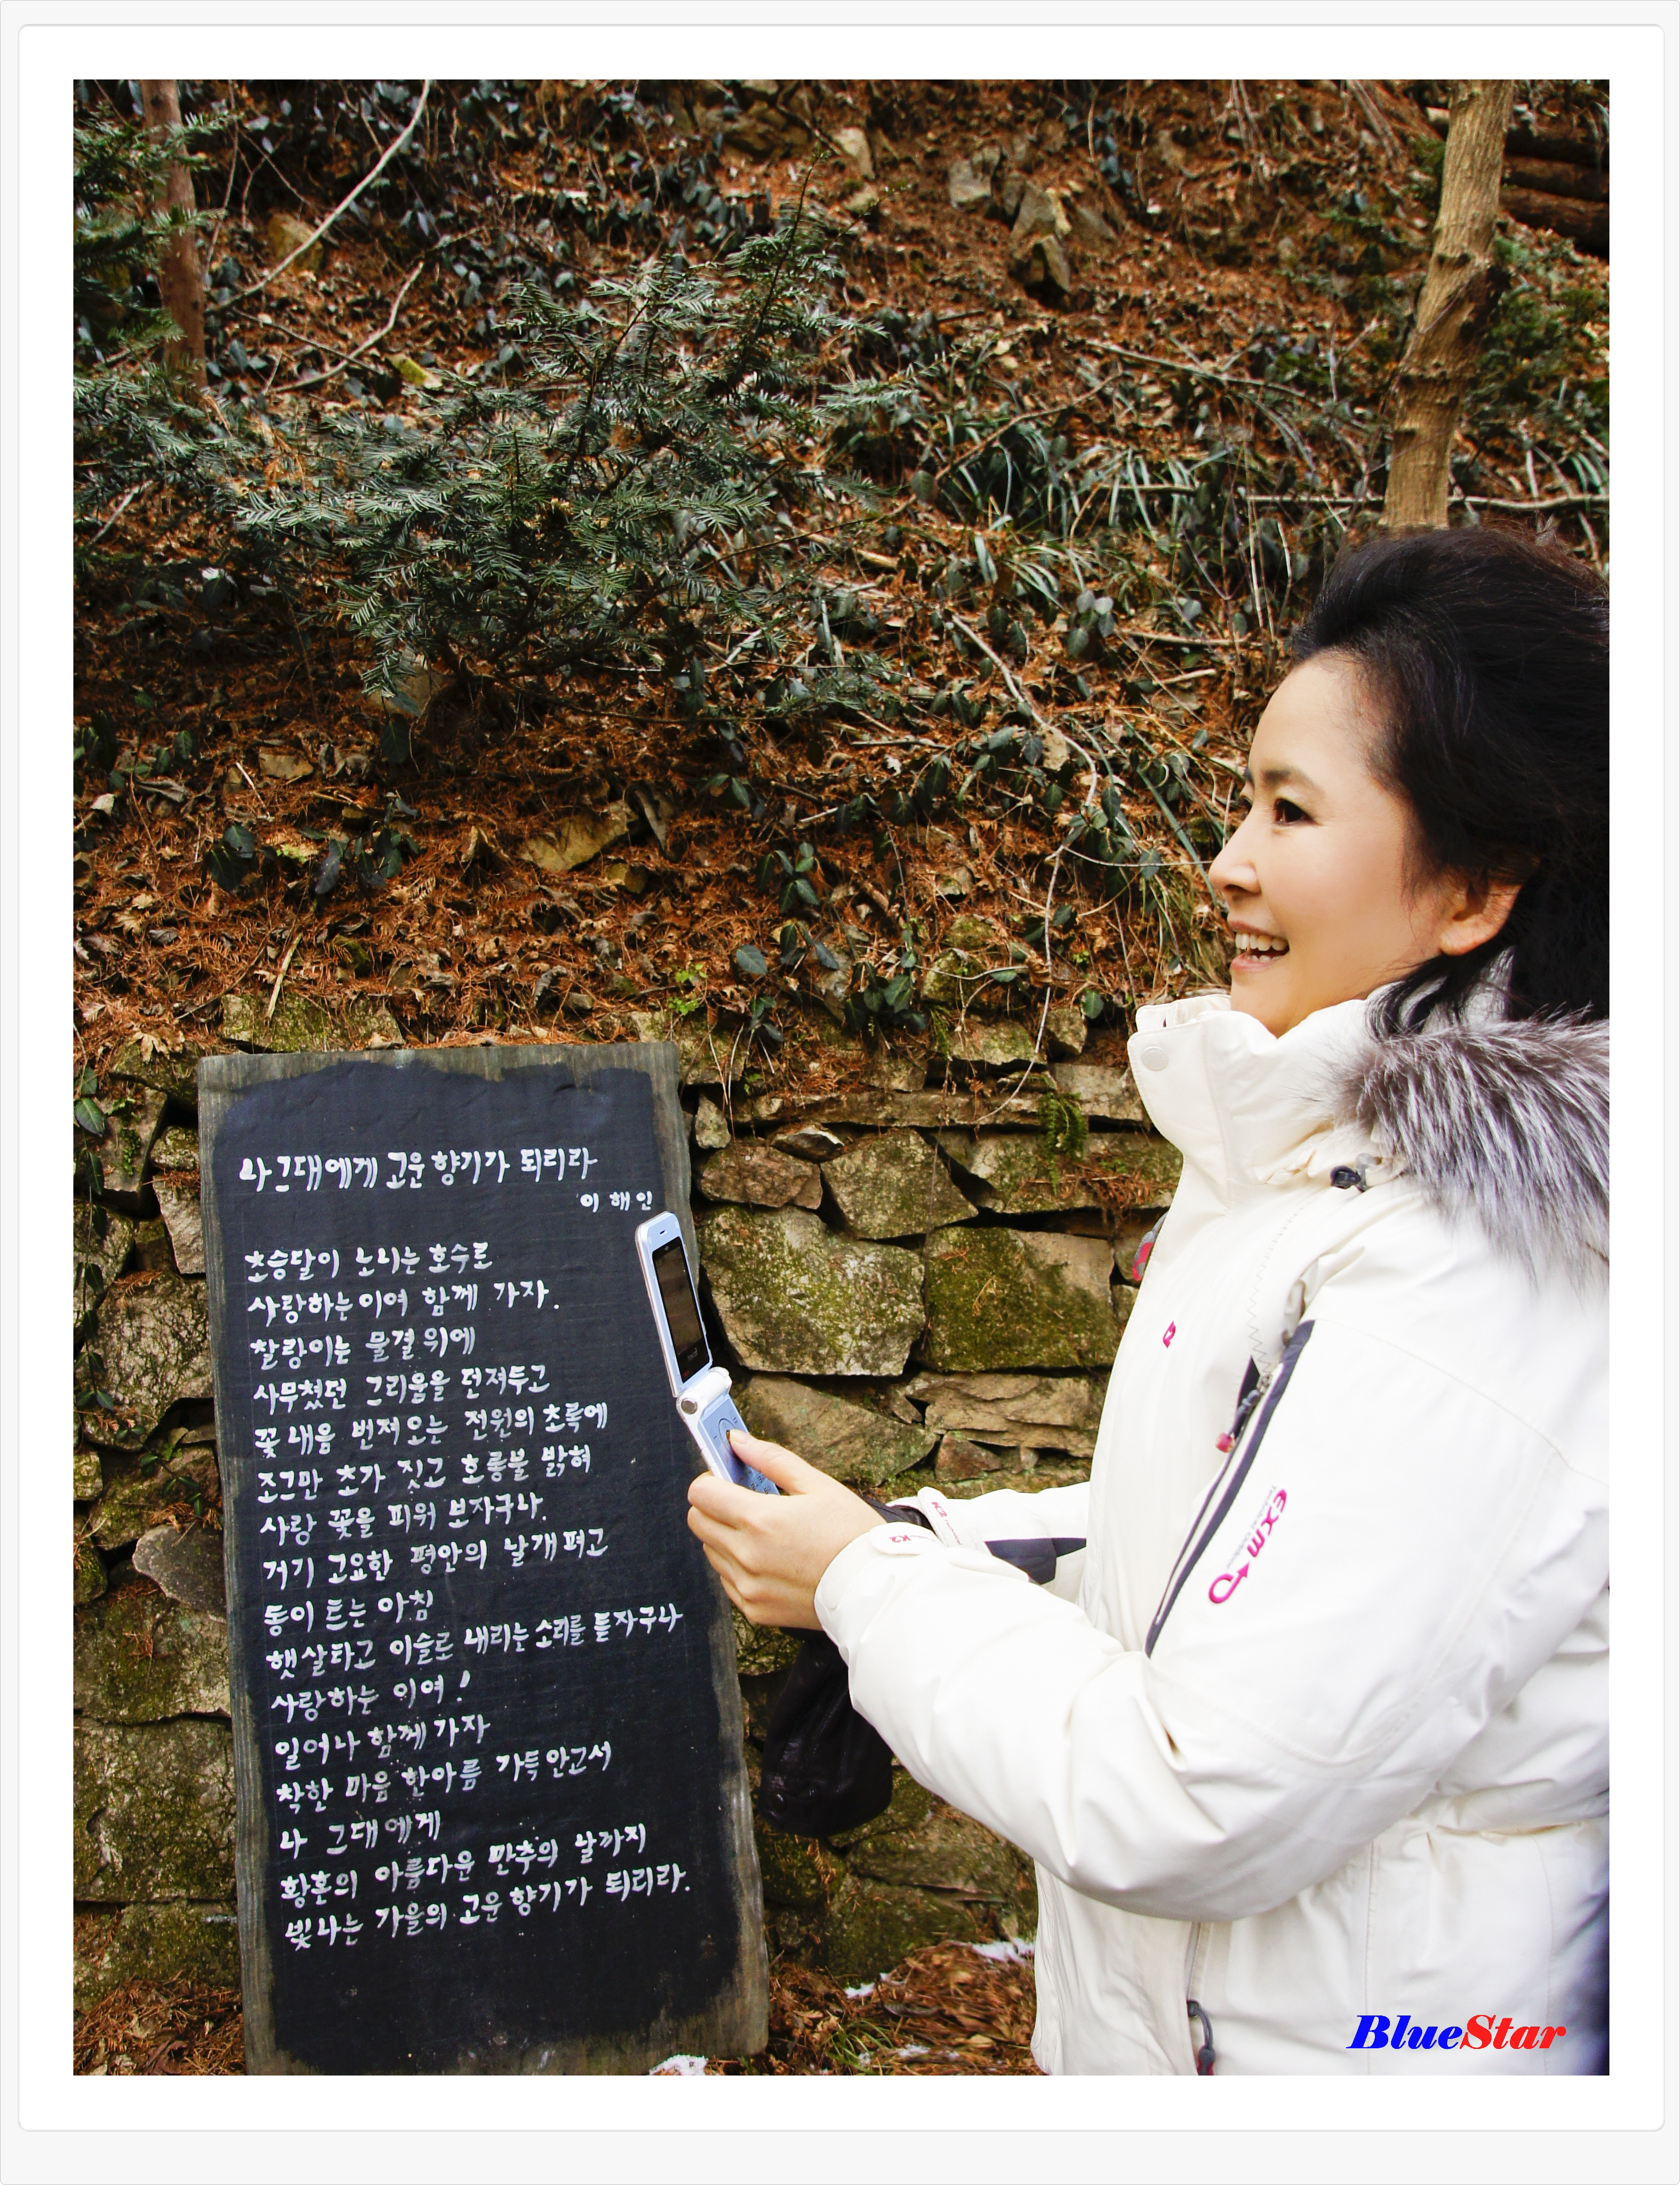 나 그대에게 고운 향기가 되리라
이 해 인
초승달이 노니는 호수로
사랑하는 이여 함께 가자.
찰랑이는 물결 위에
사무쳤던 그리움을 던져두고
꽃내음 번져오는 전원의 초록에
조그만 초가 짓고 호롱불 밝혀
사랑 꽃을 피워 보자구나.
거기 고요한 평안의 날개 펴고
동이 트는 아침
햇살타고 이슬로 내리는 소리를 듣자구나
사랑하는 이여!
일어나 함께 가자
착한 마음 한아름 가득 안고서
나 그대에게
황혼의 아름다운 만추의 날까지
빛나는 가을의 고운 향기가 되리라.
K2
exm
BlueStar